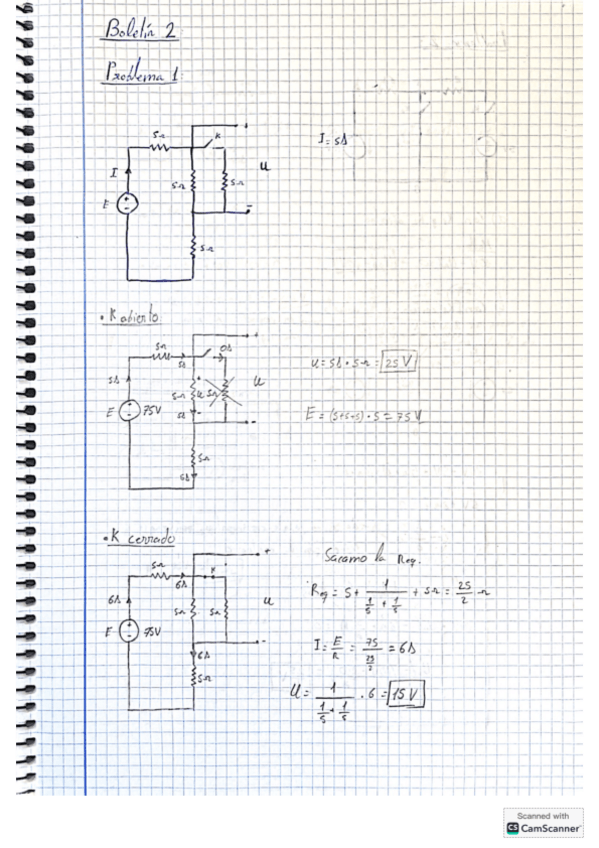 Boletín 2
Problema 1:
5Ω
K
I
5Ω
5Ω
u
E
5Ω
I = 5A
• K abierto
5Ω
0A
5A
5A
5Ω
u
5Ω
u
E
75V
5A
5Ω
5A
u = 5A · 5Ω = 25 V
E = (5+5+5) · 5 = 75 V
• K cerrado
5Ω
6A
K
6A
5Ω
5Ω
u
E
75V
6A
5Ω
Sacamo la Req.
Req = 5 + 1/(1/5 + 1/5) + 5Ω = 25/2 Ω
I = E/R = 75/(25/2) = 6A
U = 1/(1/5 + 1/5) · 6 = 15 V
Scanned with
CS CamScanner